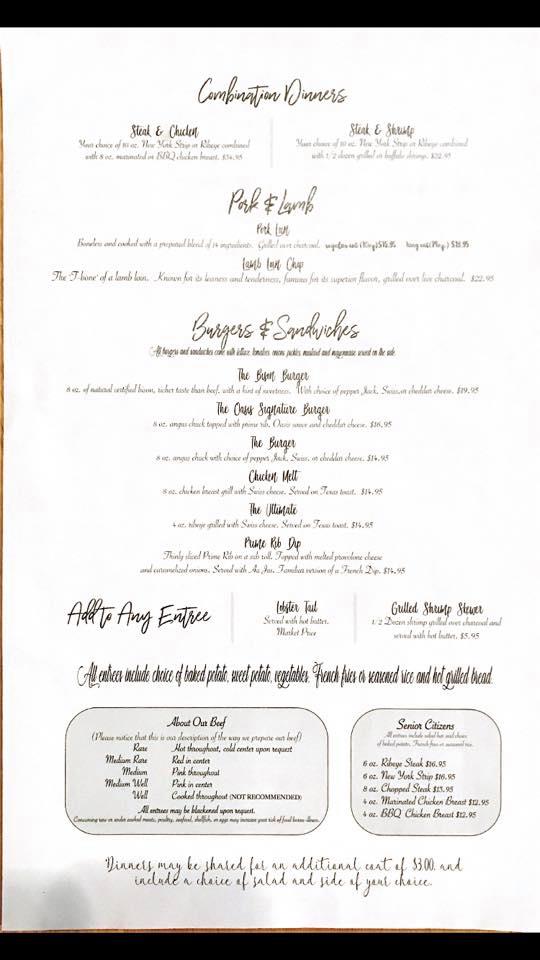 Combination Dinners
Steak & Chicken
Your choice of 10 oz. New York Strip or Ribeye combined
with 8 oz. marinated or BBQ chicken breast. $34.95
Steak & Shrimp
Your choice of 10 oz. New York Strip or Ribeye combined
with 1/2 dozen grilled or buffalo shrimp. $32.95
Pork & Lamb
Pork Loin
Boneless and cooked with a prepared blend of 14 ingredients. Grilled over charcoal.
Lamb Loin Chop
The 'T-bone' of a lamb loin. Known for its leaness and tenderness, famous for its superior flavor, grilled over live charcoal. $22.95
Burgers & Sandwiches
All burgers and sandwiches come with lettuce, tomatoes, onions, pickles, mustard and mayonnaise served on the side.
The Bison Burger
8 oz. of natural certified bison, richer taste than beef, with a hint of sweetness. With choice of pepper Jack, Swiss,or cheddar cheese. $19.95
The Oasis Signature Burger
8 oz. angus chuck topped with prime rib, Oasis sauce and cheddar cheese. $16.95
The Burger
8 oz. angus chuck with choice of pepper Jack, Swiss, or cheddar cheese. $14.95
Chicken Melt
8 oz. chicken breast grill with Swiss cheese. Served on Texas toast. $14.95
The Ultimate
4 oz. ribeye grilled with Swiss cheese. Served on Texas toast. $14.95
Prime Rib Dip
Thinly sliced Prime Rib on a sub roll. Topped with melted provolone cheese
and caramelized onions. Served with Au Jus. Familiar version of a French Dip. $14.95
Add to Any Entree
Lobster Tail
Served with hot butter.
Market Price
Grilled Shrimp Skewer
1/2 Dozen shrimp grilled over charcoal and
served with hot butter. $5.95
All entrees include choice of baked potato, sweet potato, vegetables, French fries or seasoned rice and hot grilled bread.
About Our Beef
(Please notice that this is our description of the way we prepare our beef)
Rare Hot throughout, cold center upon request
Medium Rare Red in center
Medium Pink throughout
Medium Well Pink in center
Well Cooked throughout (NOT RECOMMENDED)
All entrees may be blackened upon request.
Consuming raw or under cooked meats, poultry, seafood, shellfish, or eggs may increase your risk of food borne illness.
Senior Citizens
All entrees include salad bar and choice
of baked potato, French fries or seasoned rice.
6 oz. Ribeye Steak $16.95
6 oz. New York Strip $16.95
8 oz. Chopped Steak $13.95
4 oz. Marinated Chicken Breast $12.95
4 oz. BBQ Chicken Breast $12.95
Dinners may be shared for an additional cost of $3.00, and
include a choice of salad and side of your choice.